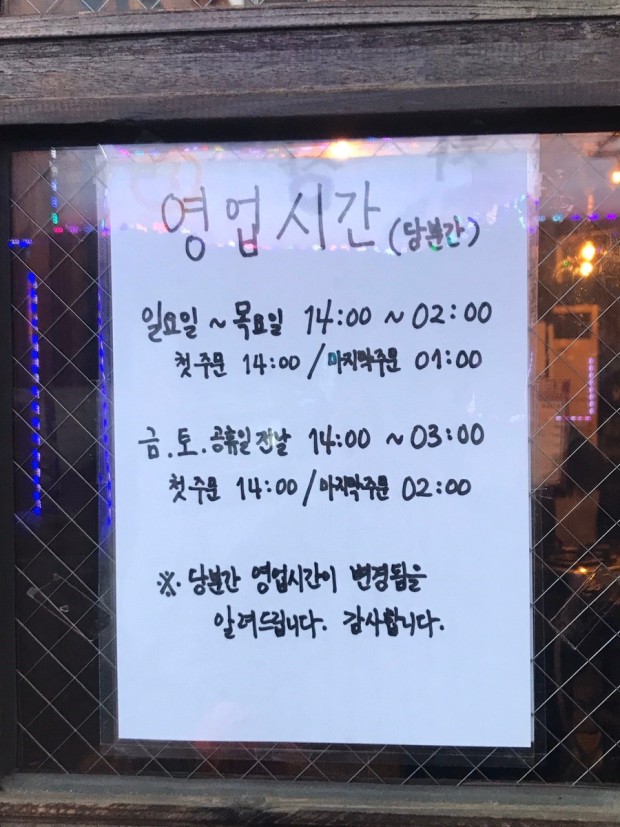 영업시간 (당분간)
일요일 ~ 목요일 14:00 ~ 02:00
첫 주문 14:00 / 마지막주문 01:00
금.토.공휴일 전날 14:00 ~ 03:00
첫 주문 14:00 / 마지막주문 02:00
※. 당분간 영업시간이 변경됨을
알려드립니다. 감사합니다.